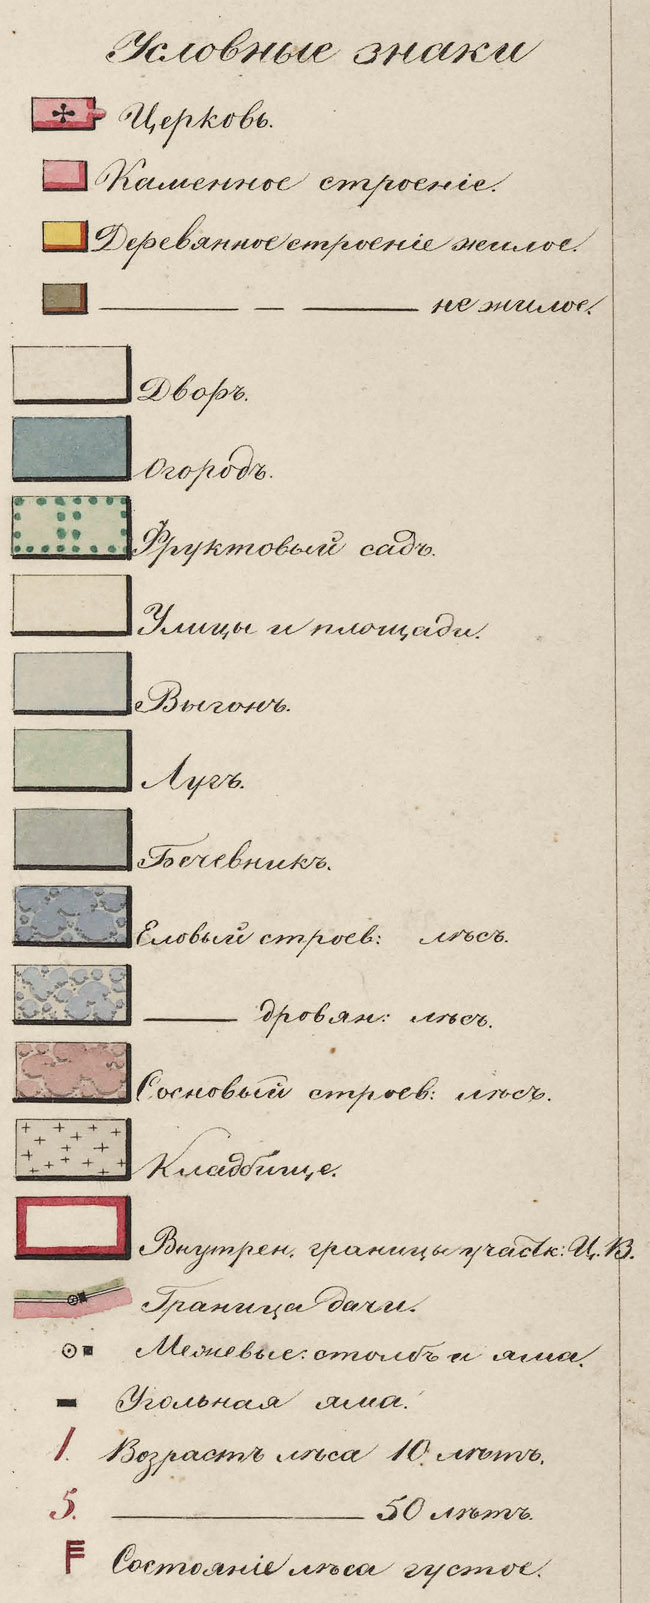 Условные знаки
Церковь.
Каменное строеніе.
Деревянное строеніе жилое.
— — — не жилое.
Дворъ.
Огородъ.
Фруктовый садъ.
Улицы и площади.
Выгонъ.
Лугъ.
Бечевникъ.
Еловый строев: лѣсъ.
— дровян: лѣсъ.
Сосновый строев: лѣсъ.
Кладбище.
Внутрен. границы участк: Ц. В.
Граница дачи.
Межевые: столбъ и яма.
Угольная яма.
1. Возрастъ лѣса 10 лѣтъ.
5. — 50 лѣтъ.
Состояніе лѣса густое.